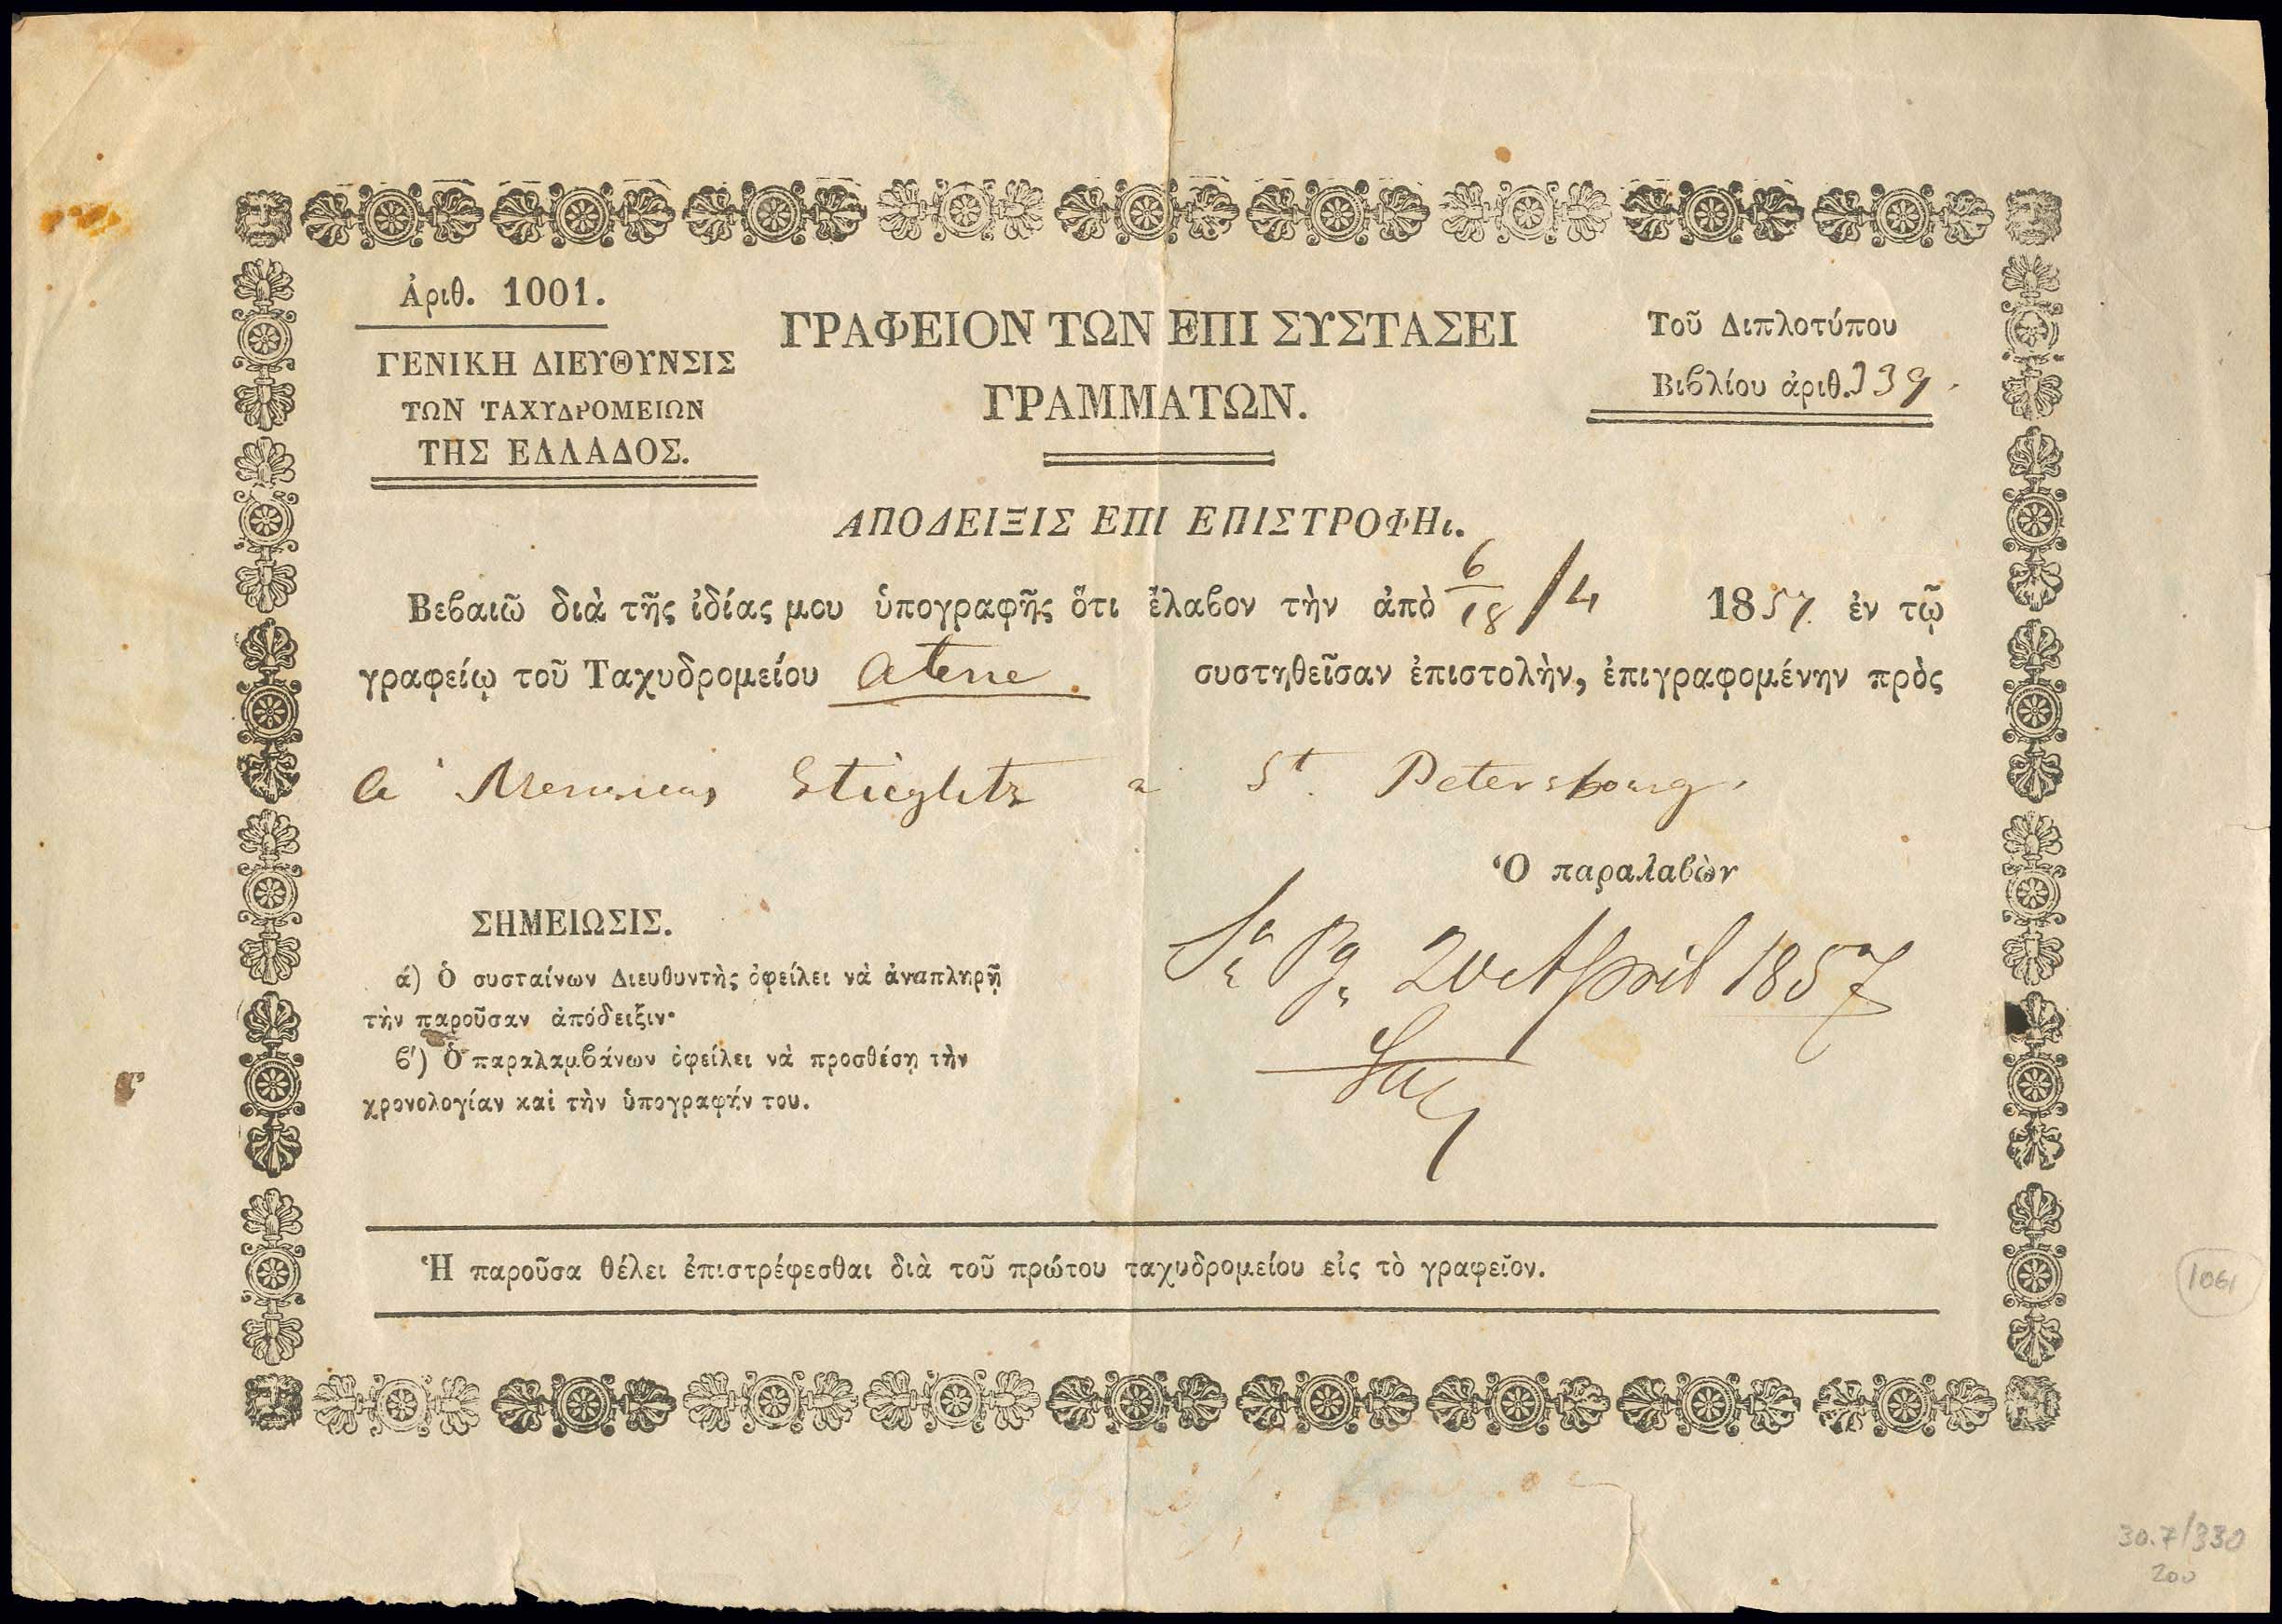 Ἀριθ. 1001.
ΓΕΝΙΚΗ ΔΙΕΥΘΥΝΣΙΣ
ΤΩΝ ΤΑΧΥΔΡΟΜΕΙΩΝ
ΤΗΣ ΕΛΛΑΔΟΣ.
ΓΡΑΦΕΙΟΝ ΤΩΝ ΕΠΙ ΣΥΣΤΑΣΕΙ
ΓΡΑΜΜΑΤΩΝ.
Τοῦ Διπλοτύπου
Βιβλίου ἀριθ. 139.
ΑΠΟΔΕΙΞΙΣ ΕΠΙ ΕΠΙΣΤΡΟΦΗι.
Βεβαιῶ διὰ τῆς ἰδίας μου ὑπογραφῆς ὅτι ἔλαβον τὴν ἀπὸ 6/18/4 1857. ἐν τῷ
γραφείῳ τοῦ Ταχυδρομείου Atene. συστηθεῖσαν ἐπιστολὴν, ἐπιγραφομένην πρὸς
a Stieglitz a St. Petersbourg.
Ὁ παραλαβὼν
St. Pg. 20 April 1857
ΣΗΜΕΙΩΣΙΣ.
ά) Ὁ συσταίνων Διευθυντὴς ὀφείλει νὰ ἀναπληρῇ
τὴν παροῦσαν ἀπόδειξιν·
β΄) Ὁ παραλαμβάνων ὀφείλει νὰ προσθέσῃ τὴν
χρονολογίαν καὶ τὴν ὑπογραφήν του.
Ἡ παροῦσα θέλει ἐπιστρέφεσθαι διὰ τοῦ πρώτου ταχυδρομείου εἰς τὸ γραφεῖον.
1061
30.7/330
200